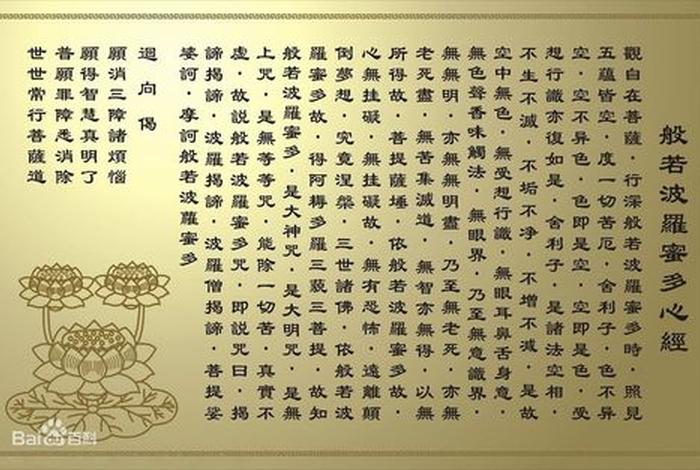 般若波羅蜜多心經
觀自在菩薩·行深般若波羅蜜多時·照見
五蘊皆空·度一切苦厄·舍利子·色不異
空·空不異色·色即是空·空即是色·受
想行識亦復如是·舍利子·是諸法空相·
不生不滅·不垢不净·不增不減·是故
空中無色·無受想行識·無眼耳鼻舌身意·
無色聲香味觸法·無眼界·乃至無意識界·
無無明·亦無無明盡·乃至無老死·亦無
老死盡·無苦集滅道·無智亦無得·以無
所得故·菩提薩埵·依般若波羅蜜多故·
心無挂礙·無挂礙故·無有恐怖·遠離顛
倒夢想·究竟涅槃·三世諸佛·依般若波
羅蜜多故·得阿耨多羅三藐三菩提·故知
般若波羅蜜多·是大神咒·是大明咒·是無
上咒·是無等等咒·能除一切苦·真實不
虛·故說般若波羅蜜多咒·即說咒曰·揭
諦揭諦·波羅揭諦·波羅僧揭諦·菩提娑
婆訶·摩訶般若波羅蜜多
迴向偈
願消三障諸煩惱
願得智慧真明了
普願罪障悉消除
世世常行菩薩道
Baidu百科